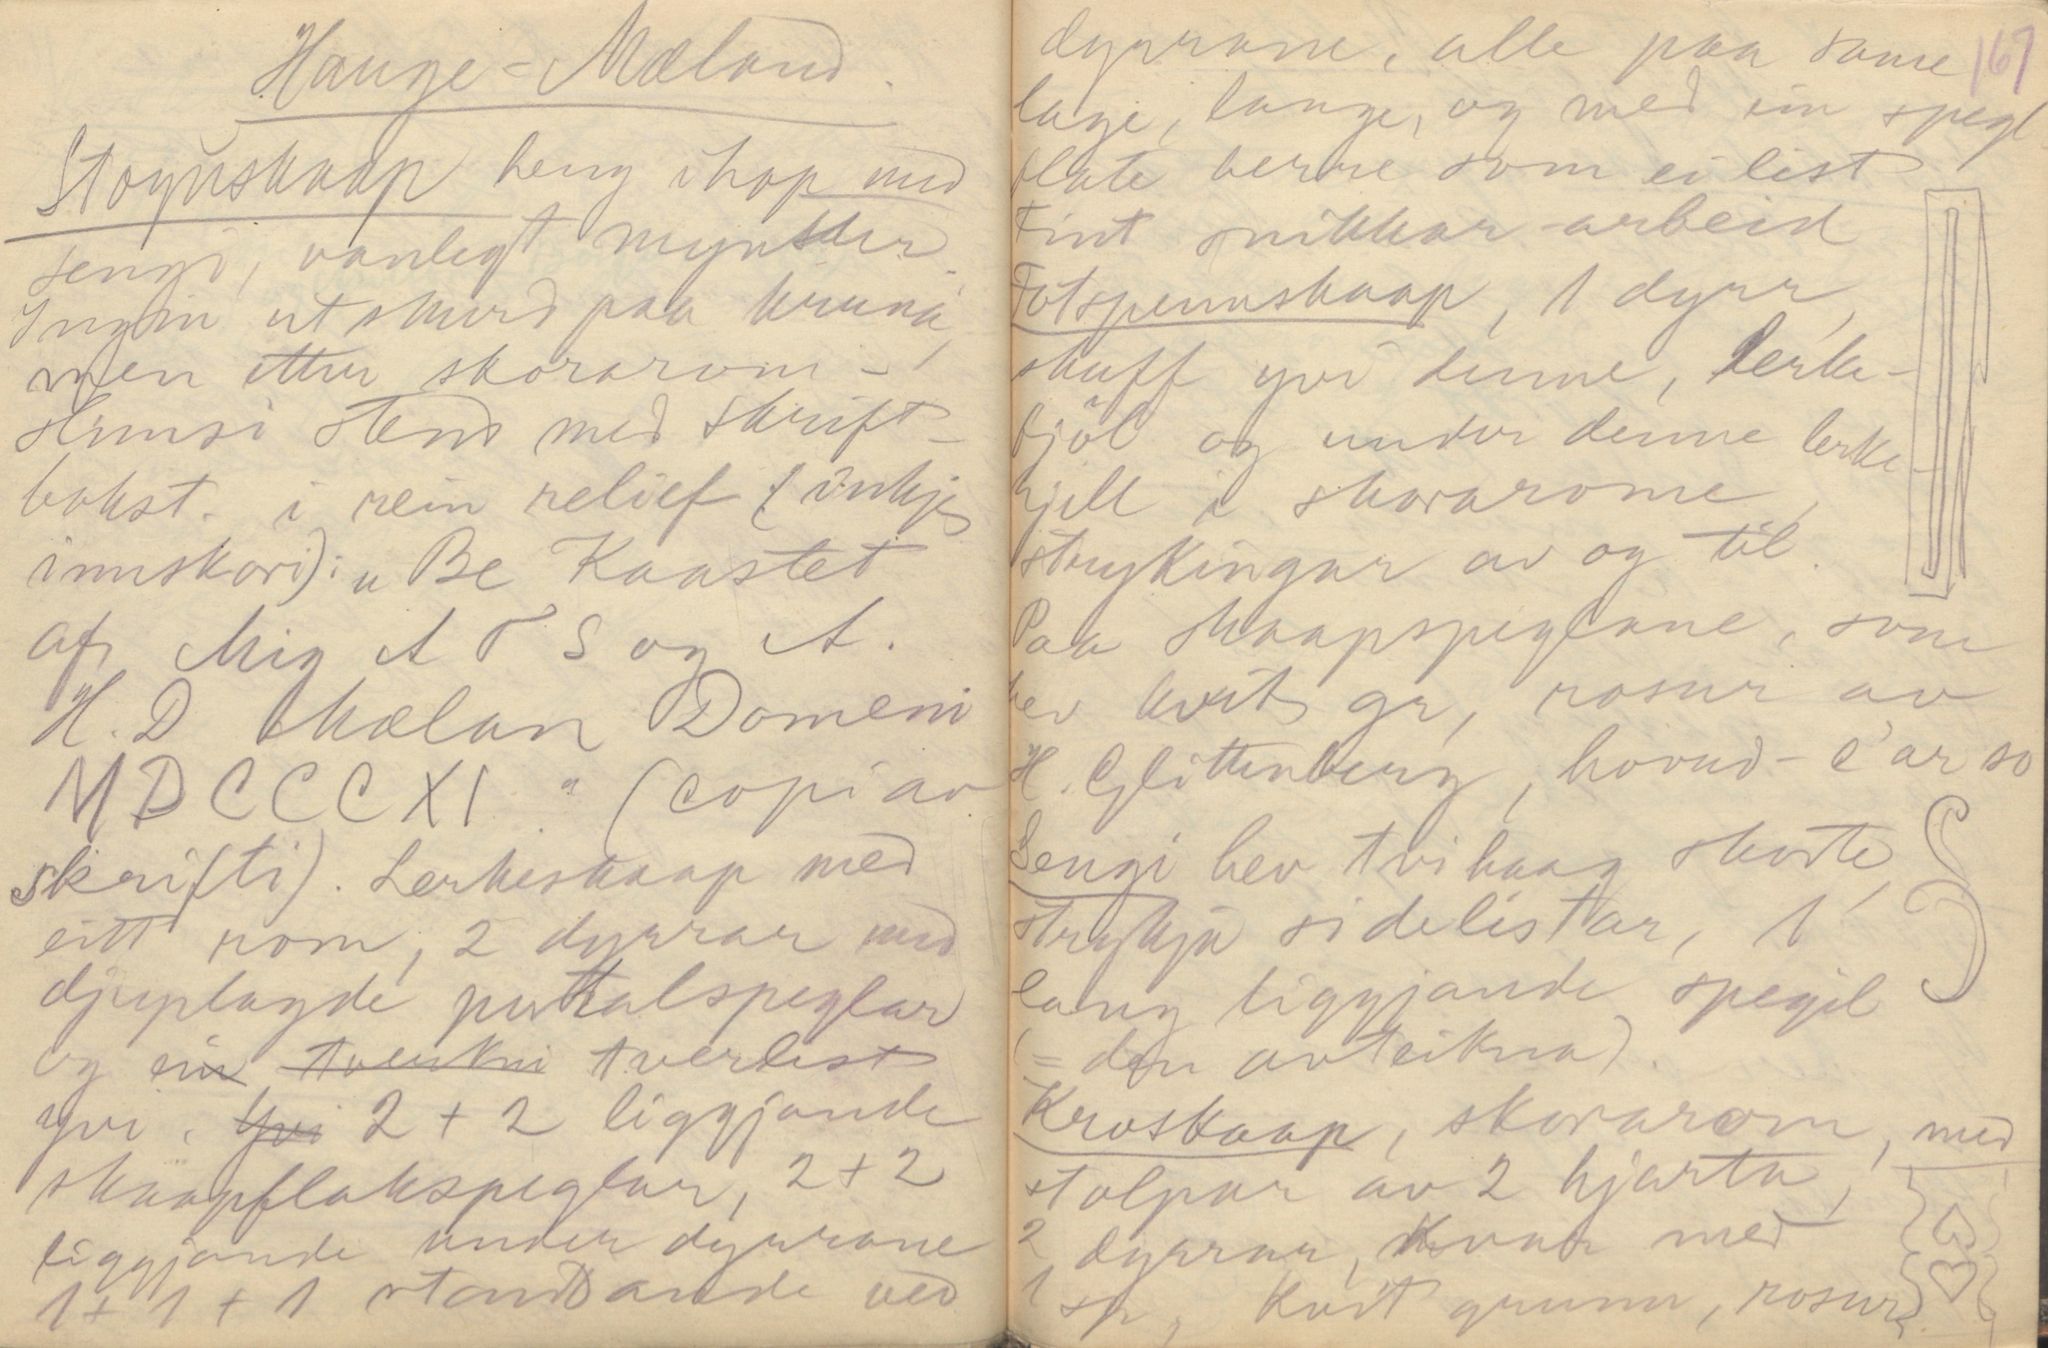 Hauge - Mæland.
Stoynskaap heng ihop med
sengi, vanlegt mynster.
Ingin utskurd paa krună,
men etter skorarom -
strimsi stend med skrift-
bokst. i rein relief (inkje
innskori): "Be Kaastet
af Mig A T S og A.
H. D Mælan Domeni
MDCCCXI" (copi av
skrifti). Lerkeskaap med
eitt rom, 2 dyrrar med
djuplagde portalspeglar
og ein tverlist
yvi. Yvi 2 + 2 liggjande
skaapflakspeglar, 2+2
liggjande under dyrrane
1 + 1 + 1 standande ved
167
dyrrane, alle paa same
lage, lange, og med ein spegl
plate berre som ei list
Fint snikkar-arbeid
Fotspennskaap, 1 dyrr,
skuff yvi denne, lerke-
fjöl og under denne lerke-
hjell i skorarome,
strykingar av og til.
Paa skaapspeglane, som
hev kvit gr, rosur av
H. Glittenberg, hovud-c'ar so
Sengi hev tvihaag skorte,
strykja sidelistar, 1
lang liggjande spegil
(= den avteikna).
Kroskaap, skorarom, med
stolpar av 2 hjarta,
2 dyrrar, kvar med
1 sp, kvit grunn, rosur